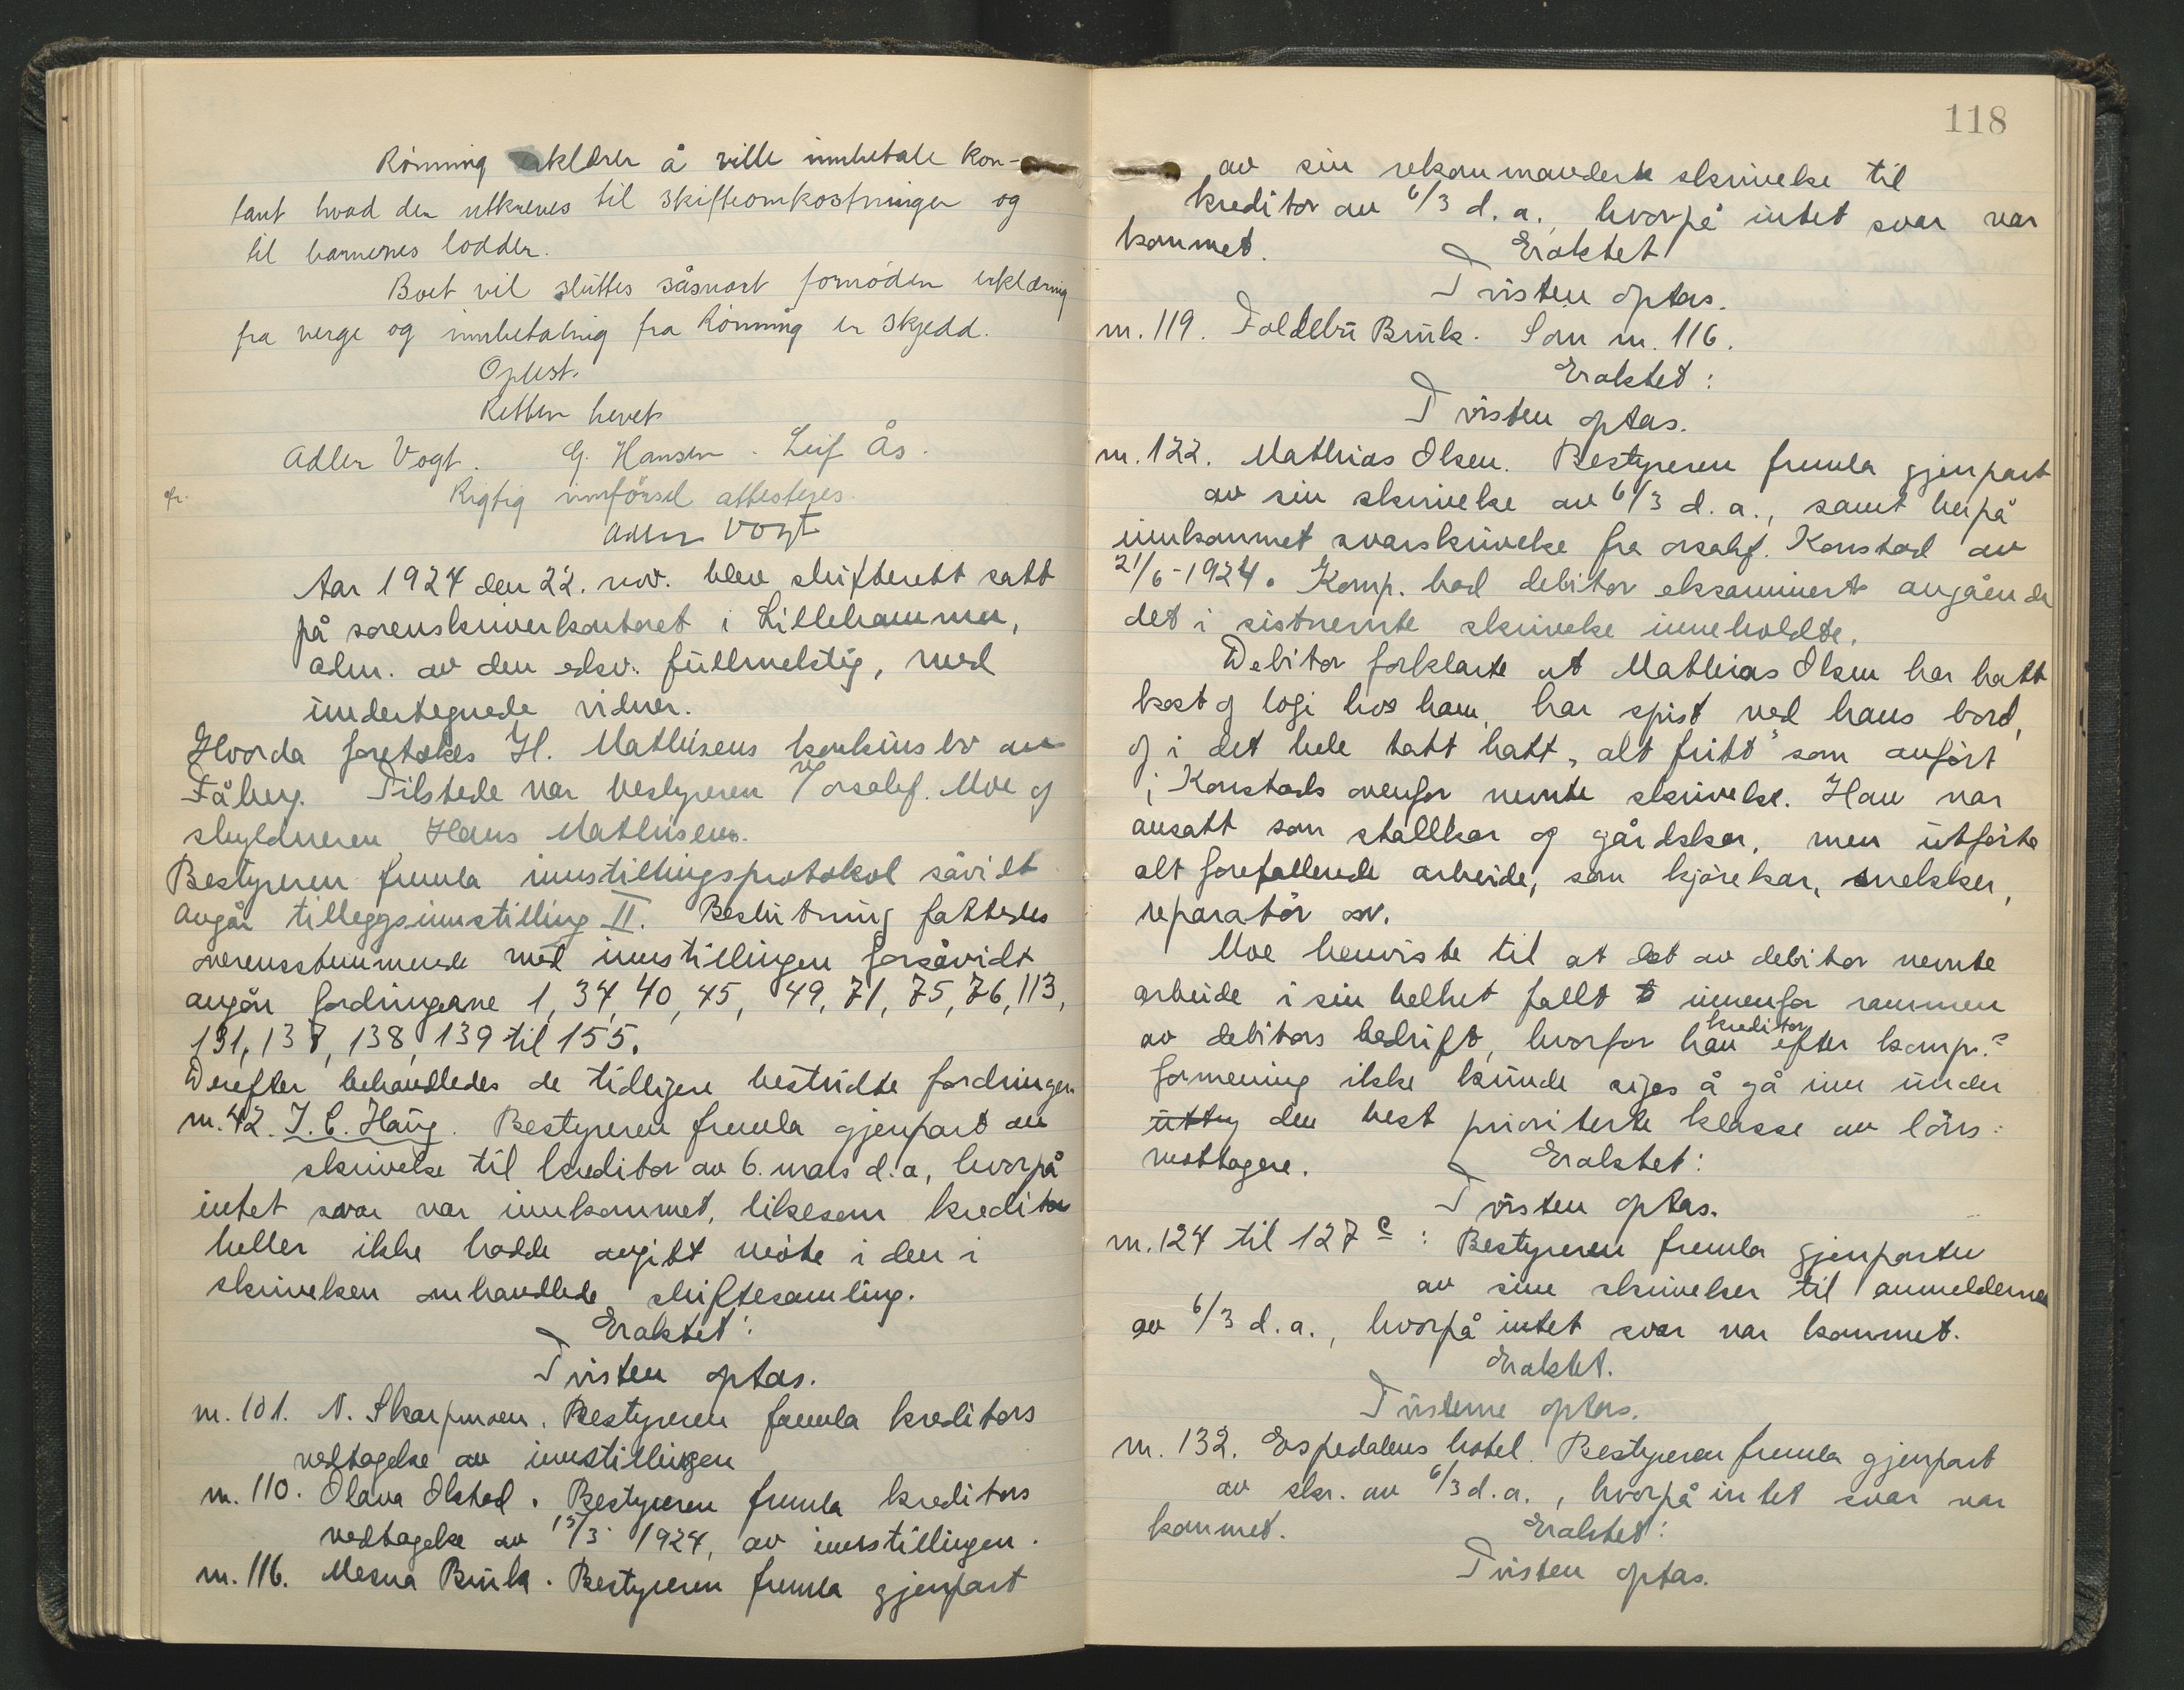 Rönning erklærer å ville innbetale kon-
tant hvad der utkreves til skifteomkostninger og
til barnenes lodder.
Boet vil sluttes såsnart fornöden erklæring
fra verge og innbetalnig fra Rönning er skjedd.
Oplest.
Retten hevet
Adler Vogt. G. Hansen. Leif Ås.
Rigtig innförsel attesteres.
Adler Vogt
Aar 1924 den 22. nov. blev skifterett satt
på sorenskriverkontoret i Lillehammer,
adm. av den edsv. fullmektig, med
undertegnede vidner.
Hvorda foretokes H. Mathisens konkursbo av
Fåberg. Tilstede var bestyreren orsakf. Moe og
skyldneren Hans Mathisen.
Bestyreren fremla innstillingsprotokol såvidt
angår tilleggsinnstilling II. Beslutning fattedes
overensstemmende med innstillingen forsåvidt
angår fordringene 1, 34, 40, 45, 49, 71, 75, 76, 113,
131, 137, 138, 139 til 155.
Derefter behandledes de tidligere bestridte fordringer
nr. 42. J. C. Haug. Bestyreren fremla gjenpart av
skrivelse til kreditor av 6. mars d.a, hvorpå
intet svar var innkommet, likesom kreditor
heller ikke hadde avgitt möte i den i
skrivelsen omhandlede skiftesamling.
Eraktet:
Tvisten optas.
nr. 101. N. Skarpmoen. Bestyreren fremla kreditors
vedtagelse av innstillingen
nr. 110. Olava Olstad. Bestyreren fremla kreditors
vedtagelse av 15/3 1924, av innstillingen.
nr. 116. Mesna Bruk. Bestyreren fremla gjenpart
118
av sin rekommanderte skrivelse til
kreditor av 6/3 d. a., hvorpå intet svar var
kommet. Eraktet
Tvisten optas.
nr. 119. Foldebu Bruk. Som nr. 116.
Eraktet:
Tvisten optas.
nr. 122. Mathias Olsen. Bestyreren fremla gjenpart
av sin skrivelse av 6/3 d.a., samt herpå
innkommet svarskrivelse fra orsakf. Konstad av
21/6-1924. Komp. bad debitor eksaminert angående
det i sistnevnte skrivelse inneholdte.
Debitor forklarte at Mathias Olsen har hatt
kost og logi hos ham, har spist ved hans bord,
og i det hele tatt hatt „alt fritt" som anfört
i Konstads ovenfor nevnte skrivelse. Han var
ansatt som stallkar og gårdskar, men utförte
alt forefallende arbeide, som kjörekar, snekker,
reparatör osv.
Moe henviste til at det av debitor nevnte
arbeide i sin helhet fallt innenfor rammen
av debitors bedrift, hvorfor han kreditor efter komp.s
formening ikke kunde sies å gå inn under
den best prioriterte klasse av löns-
mottagere. Eraktet:
Tvisten optas.
nr. 124 til 127 c: Bestyreren fremla gjenparter
av sine skrivelser til anmelderne
av 6/3 d. a., hvorpå intet svar var kommet.
Eraktet.
Tvistene optas.
nr. 132. Espedalens hotel. Bestyreren fremla gjenpart
av skr. av 6/3 d.a., hvorpå intet svar var
kommet. Eraktet:
Tvisten optas.